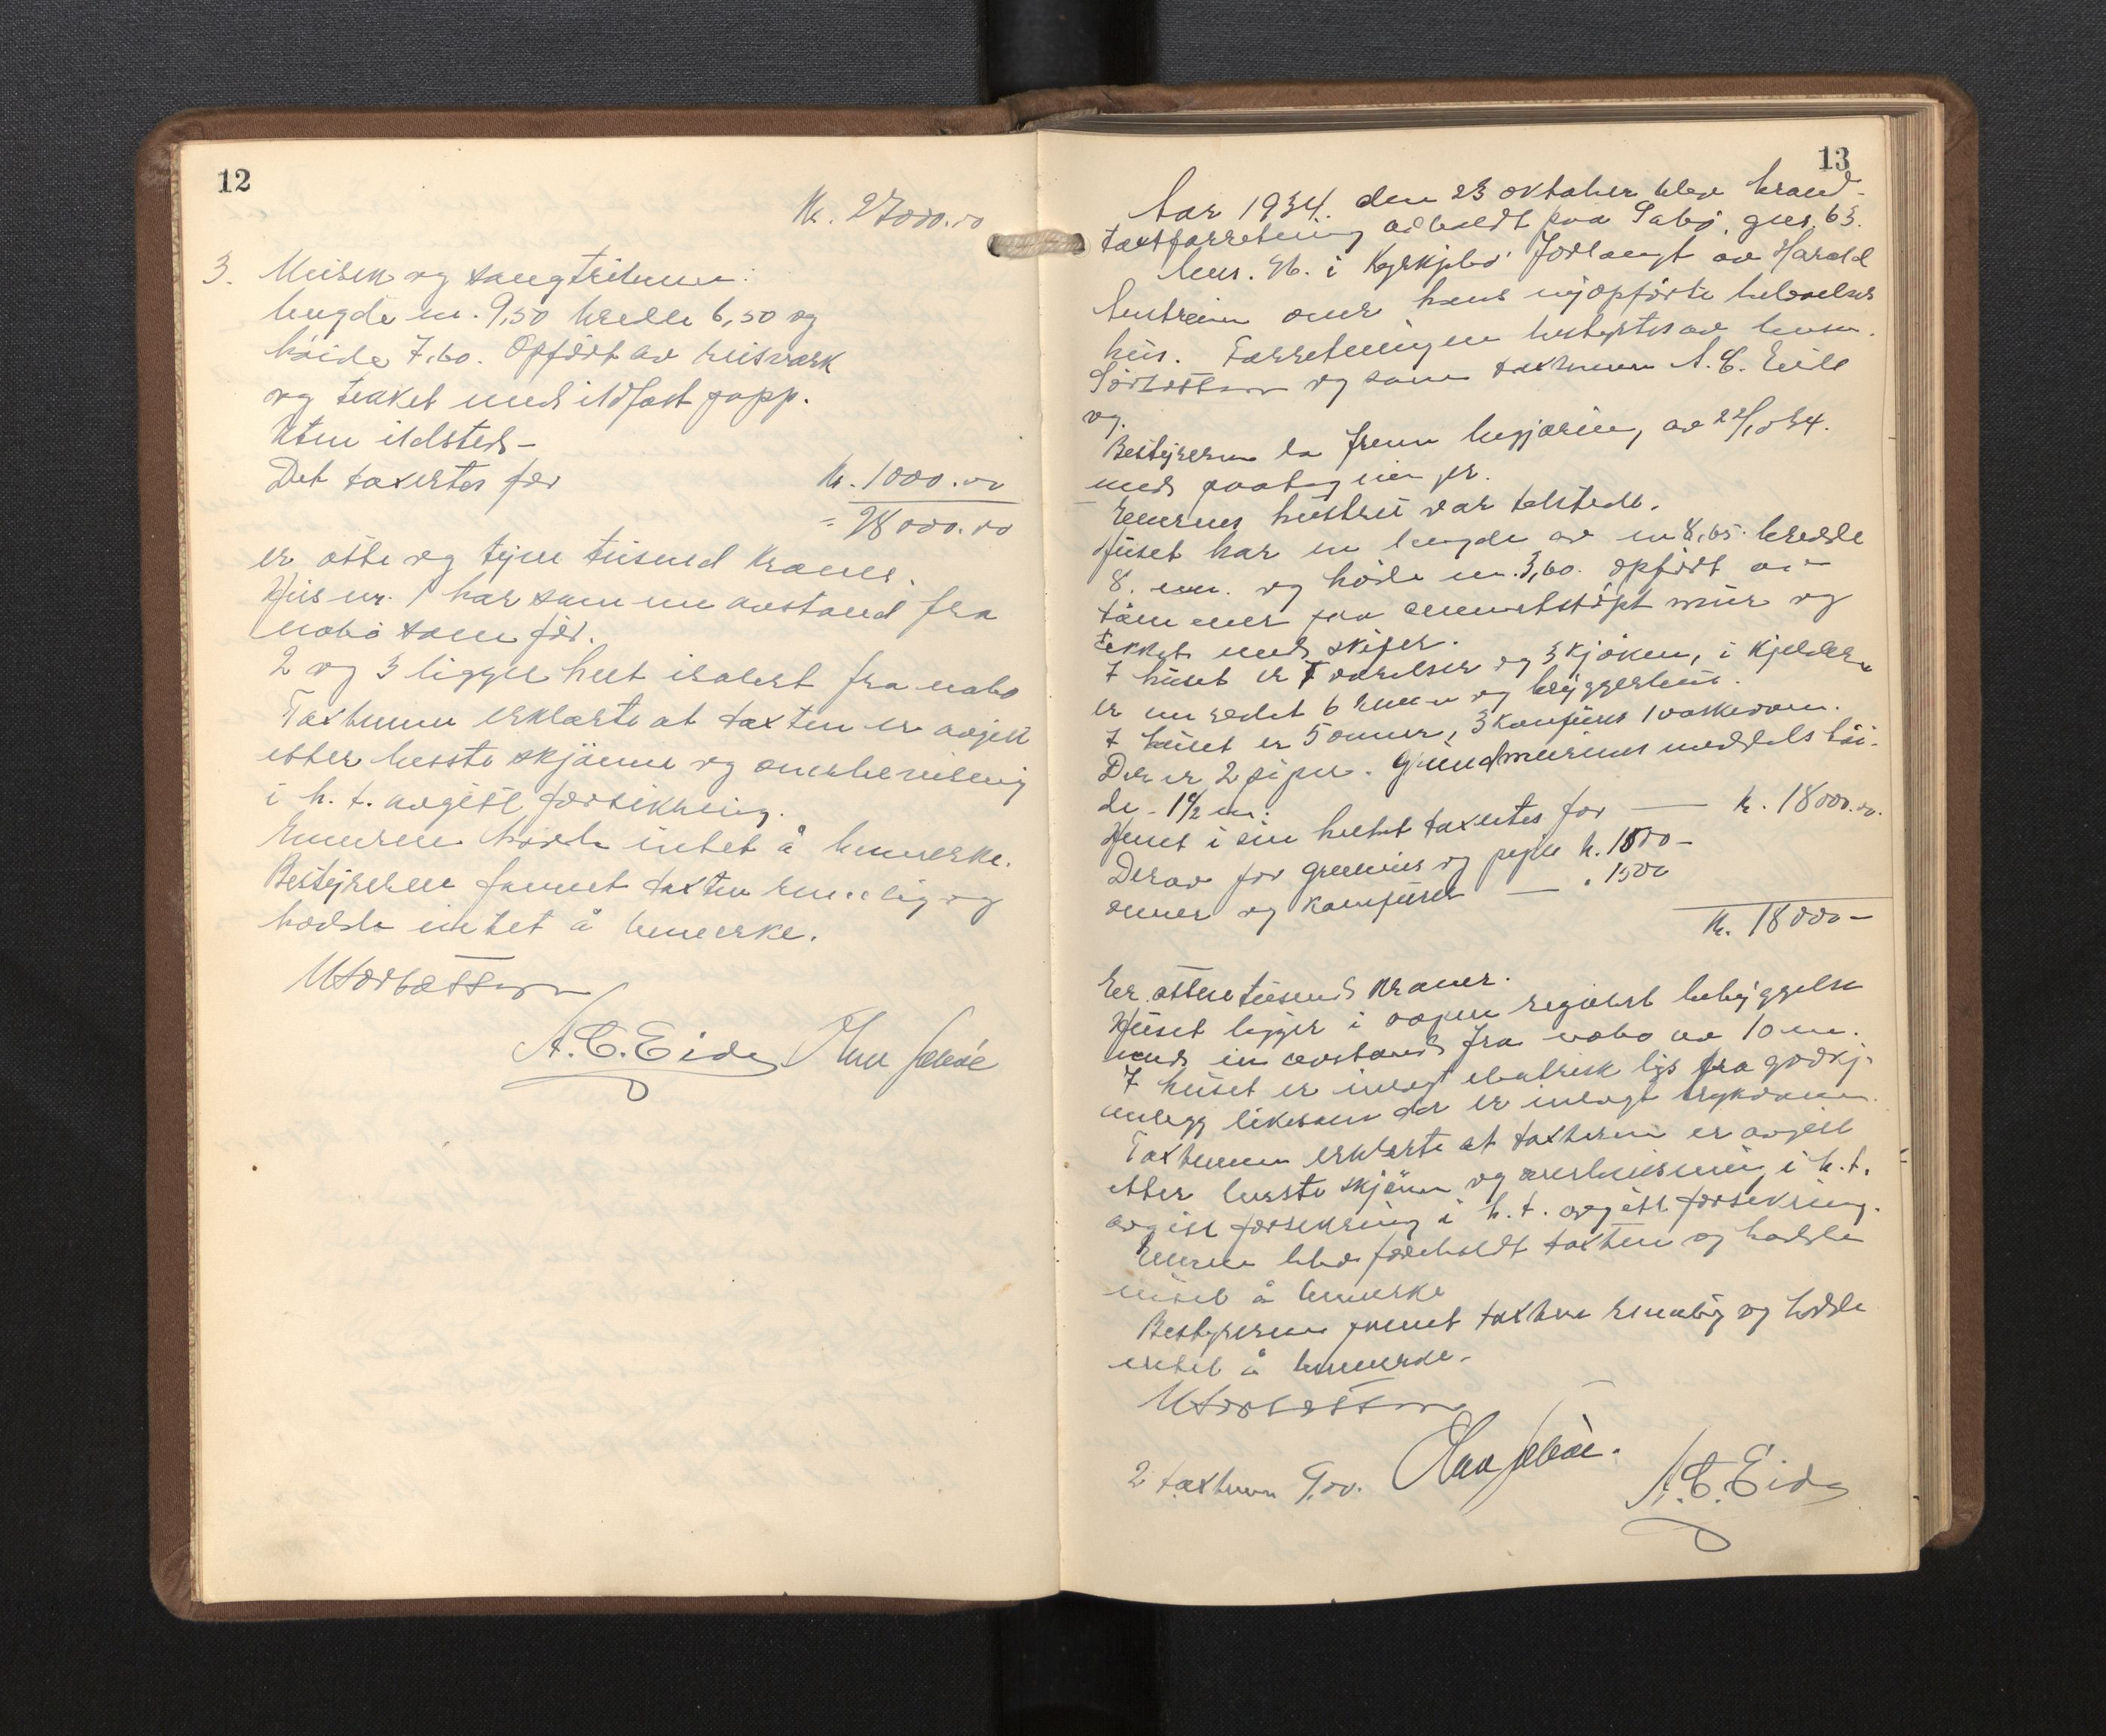 12
Kr. 27000.00
3. Musik og sangtribune:
lengde m. 9,50 bredde 6,50 og
høide 7,60. Opført av reisverk
og tekket med ildfast papp.
Uten ildsted –
Det taxertes for kr. 1000.00
= 28000.00
er otte og tyve tusend Kroner.
Hus nr. 1 har samme avstand fra
nabo som før.
2 og 3 ligger helt isolert fra nabo
Taxtmenn erklærte at taxten er avgitt
efter beste skjønn og overbevisning
i h. t. avgitt forsikring.
Eieren hadde intet å bemerke.
Bestyreren fannt taxten rimelig og
hadde intet å bemerke.
A. C. Eide
13
Aar 1934. den 23 oktober blev brand-
taxtforretning avholdt paa Sabø, gnr. 63.
bnr. i Kyrkjebø forlangt av Harald
over hans nyopførte beboelses
hus. Forretningen bestyrtes av lensm.
og som taxtmenn A. C. Eide
og
Bestyreren la frem begjæring av 22/10 34.
med paategninger.
Eierens hustru var tilstede.
Huset har en lengde av m 8,65. bredde
8. m. og høide m. 3,60. opført av
tømmer paa cementstøpt mur og
tekket med skifer.
I huset er 7 værelser og 3 kjøken, i kjelderen
er inredet 6 rum og bryggerhus.
I huset er 5 ovner, 3 komfurer 1 vaskeovn.
Der er 2 piper. Grundmurens middels høi-
de – 1½ m.
Huset i sin helhet taxertes for — kr. 18000.00.
Derav for grunmur og piper kr. 1800 –
ovner og komfurer — " 1500
Kr. 18000 –
Er atten tusend Kroner.
Huset ligger i aapen regulert bebyggelse
med en avstand fra nabo av 10 m.
I huset er inlagt elektrisk lys fra godkj.
anlegg likesom der er inlagt trykvann.
Taxtmenn erklærte at taxten er avgitt
etter beste skjønn og overbevisning i h. t.
avgitt forsikring i h. t. avgitt forsikring.
Eieren blev foreholdt taxten og hadde
intet å bemerke
Bestyreren funnet taxten rimelig og hadde
intet å bemerke.
2 taxtmenn 9.00.
A. C. Eide